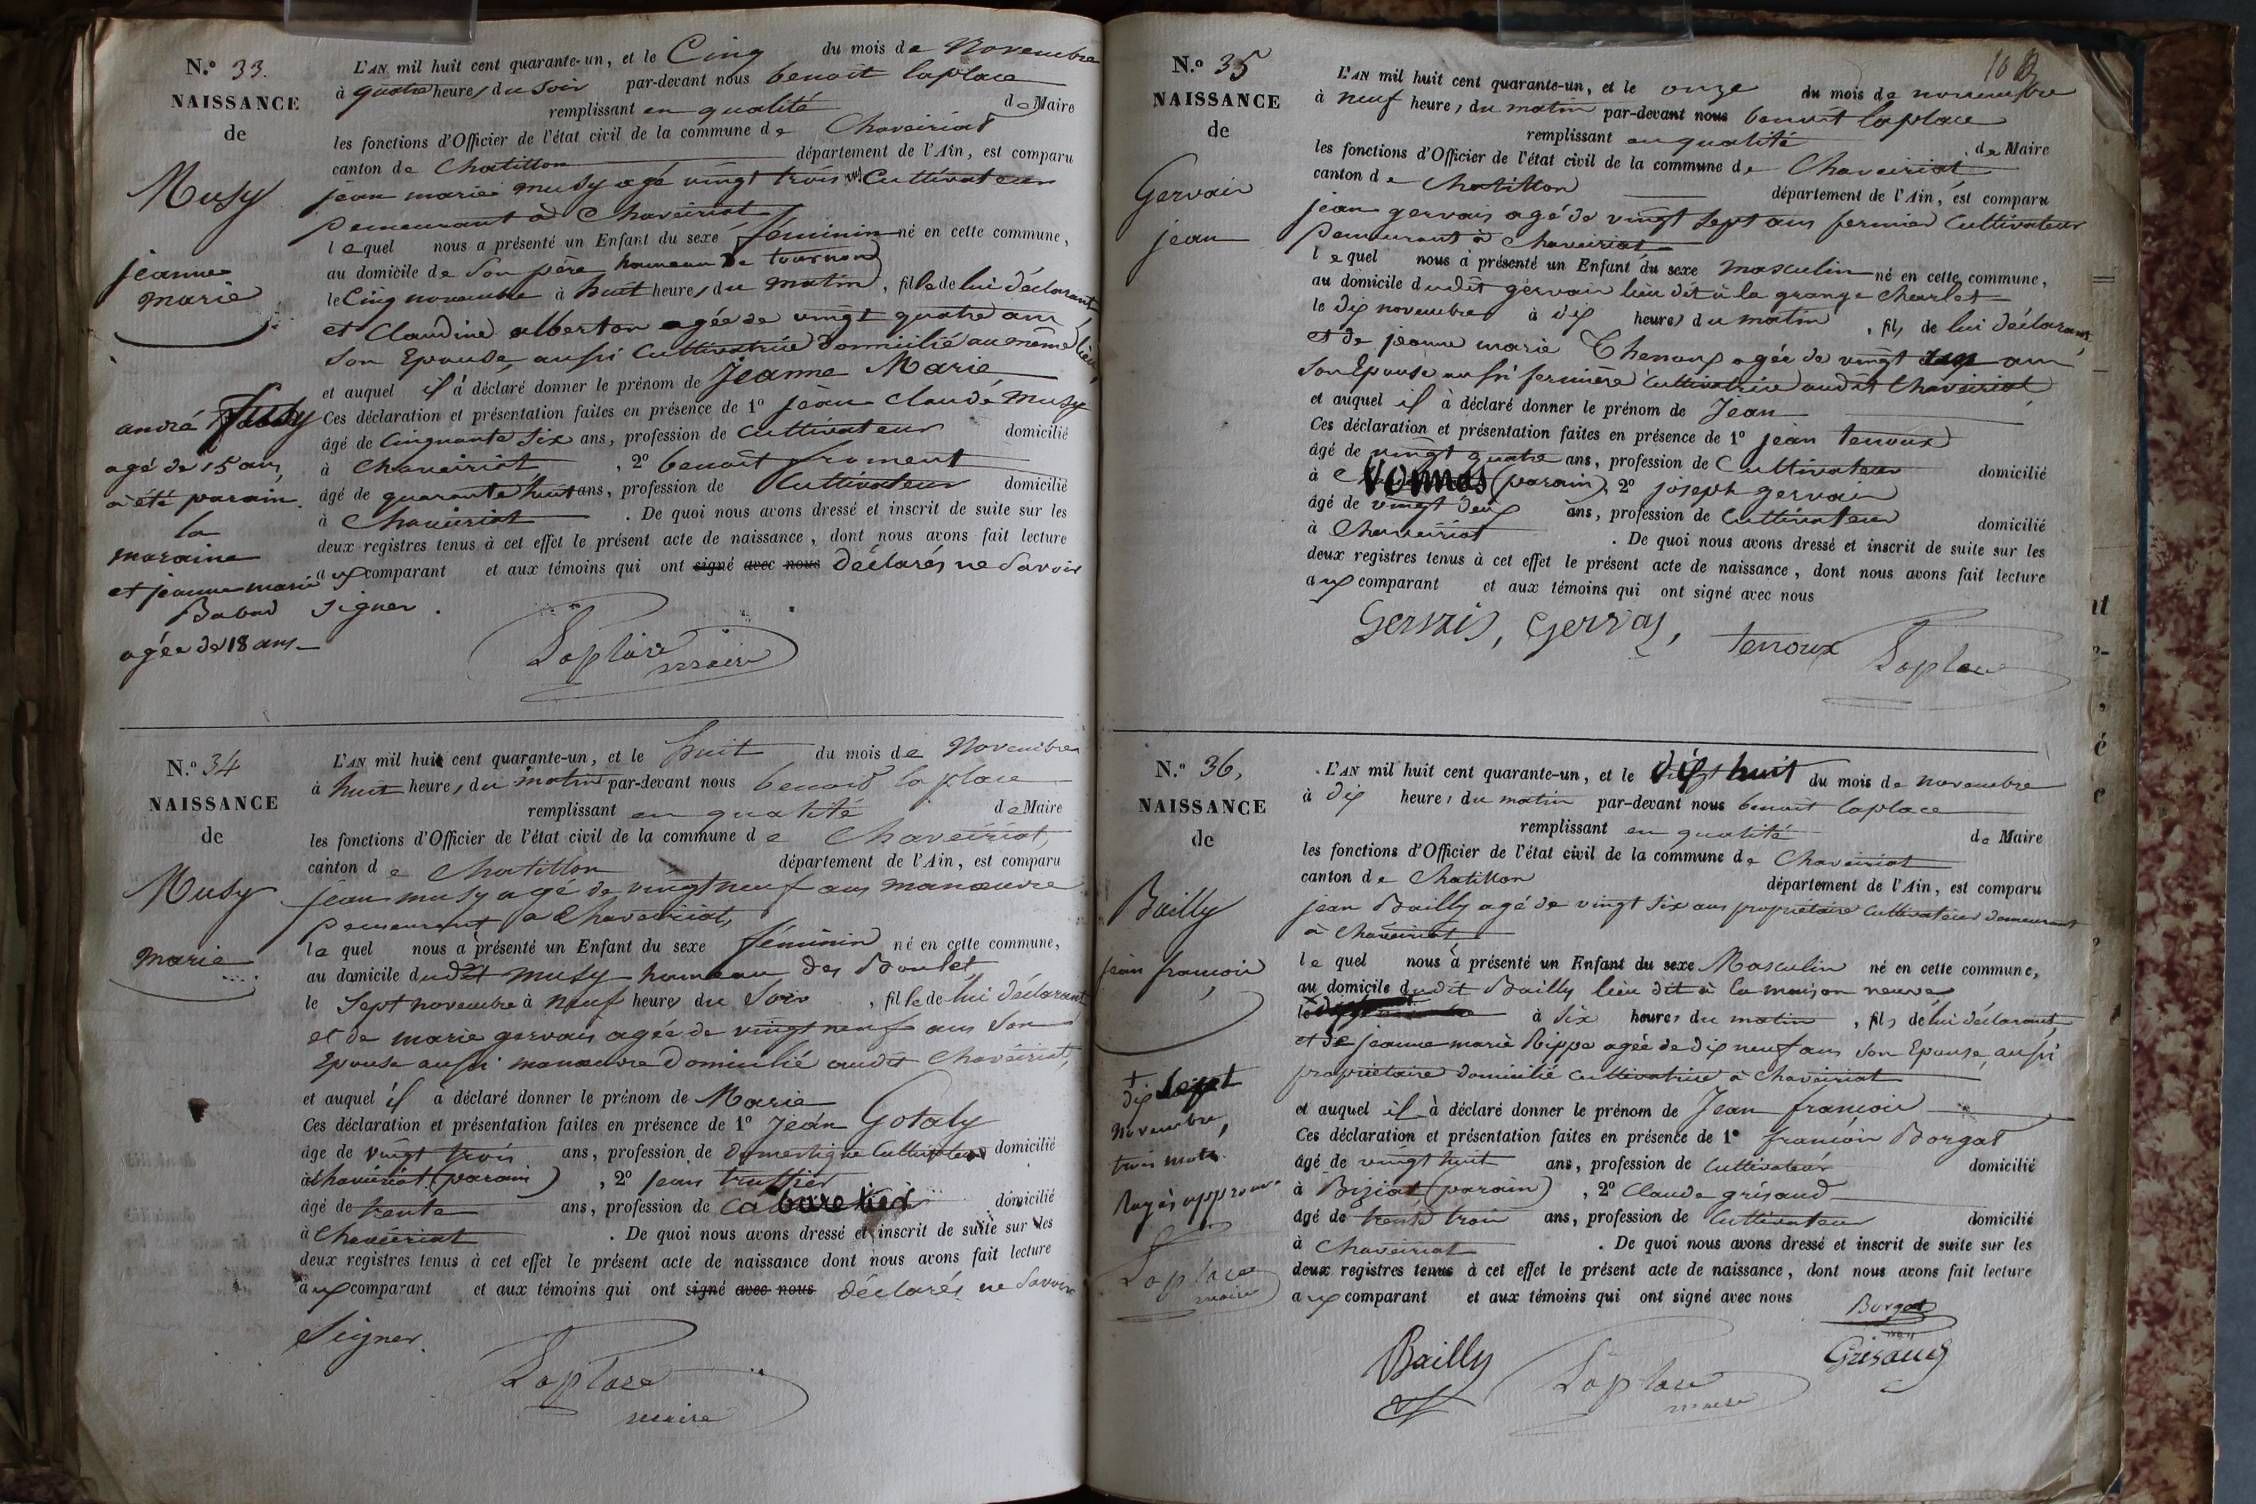 N.º 33.
NAISSANCE
de
Musy
jeanne
marie
andré Musy
agé de 15 ans
a été parain
la
maraine
et jeanne marie
Babad
agée de 18 ans
L'AN mil huit cent quarante-un, et le Cinq du mois de Novembre
à quatre heures du soir par-devant nous benoit laplace
remplissant en qualité de Maire
les fonctions d'Officier de l'état civil de la commune de Chaveiriat
canton de Chatillon département de l'Ain, est comparu
jean marie musy agé vingt trois ans Cultivateur
demeurant à Chaveiriat
lequel nous a présenté un Enfant du sexe féminin né en cette commune,
au domicile de son père hameau de tournon
le Cinq novembre à huit heures du matin, fille de lui déclarant
et Claudine alberton agée de vingt quatre ans
son Epouse, aussi Cultivatrice domicilié au même lieu,
et auquel il a déclaré donner le prénom de Jeanne Marie
Ces déclaration et présentation faites en présence de 1º jean Claude Musy
âgé de Cinquante six ans, profession de Cultivateur domicilié
à Chaveiriat, 2º benoit froment
âgé de quarante huit ans, profession de Cultivateur domicilié
à Chaveiriat. De quoi nous avons dressé et inscrit de suite sur les
deux registres tenus à cet effet le présent acte de naissance, dont nous avons fait lecture
aux comparant et aux témoins qui ont signé avec nous déclarés ne savoir
signer.
Laplace
maire
N.º 34
NAISSANCE
de
Musy
marie
L'AN mil huit cent quarante-un, et le huit du mois de Novembre
à huit heures du matin par-devant nous benoit laplace
remplissant en qualité de Maire
les fonctions d'Officier de l'état civil de la commune de Chaveiriat,
canton de Chatillon département de l'Ain, est comparu
jean musy agé de vingt neuf ans manœuvre
demeurant a Chaveiriat,
lequel nous a présenté un Enfant du sexe féminin né en cette commune,
au domicile dudit musy hameau des Boulet
le sept novembre à neuf heures du soir, fille de lui déclarant
et de marie gervais agée de vingt neuf ans son
Epouse aussi manœuvre domicilié audit Chaveiriat,
et auquel il a déclaré donner le prénom de Marie
Ces déclaration et présentation faites en présence de 1º Jean Gotaly
âge de vingt trois ans, profession de domestique Cultivateur domicilié
à Chaveiriat (parain), 2º jean truffier
âgé de trente ans, profession de cabaretier domicilié
à Chaveiriat. De quoi nous avons dressé et inscrit de suite sur les
deux registres tenus à cet effet le présent acte de naissance dont nous avons fait lecture
aux comparant et aux témoins qui ont signé avec nous déclarés ne savoir
Signer.
Laplace
maire
10
N.º 35
NAISSANCE
de
Gervais
jean
L'AN mil huit cent quarante-un, et le onze du mois de novembre
à neuf heures du matin par-devant nous benoit laplace
remplissant en qualité de Maire
les fonctions d'Officier de l'état civil de la commune de Chaveiriat
canton de Chatillon département de l'Ain, est comparu
jean gervais agé de vingt sept ans fermier Cultivateur
demeurant à Chaveiriat
lequel nous a présenté un Enfant du sexe masculin né en cette commune,
au domicile dudit gervais lieu dit à la grange charlet
le dix novembre à dix heures du matin, fils de lui déclarant,
et de jeanne marie Thenoux agée de vingt un ans
son Epouse aussi fermière Cultivatrice audit Chaveiriat
et auquel il à déclaré donner le prénom de Jean
Ces déclaration et présentation faites en présence de 1º jean tenoux
âgé de vingt quatre ans, profession de Cultivateur domicilié
à vonnas (parain), 2º joseph gervais
âgé de vingt deux ans, profession de Cultivateur domicilié
à Chaveiriat. De quoi nous avons dressé et inscrit de suite sur les
deux registres tenus à cet effet le présent acte de naissance, dont nous avons fait lecture
aux comparant et aux témoins qui ont signé avec nous
Gervais, Gervais, tenoux Laplace
N.º 36,
NAISSANCE
de
Bailly
jean françois
+
dix sept
novembre,
trois mots
Rayés approuvé
Laplace
maire
L'AN mil huit cent quarante-un, et le dix huit du mois de novembre
à dix heures du matin par-devant nous benoit laplace
remplissant en qualité de Maire
les fonctions d'Officier de l'état civil de la commune de Chaveiriat
canton de Chatillon département de l'Ain, est comparu
jean Bailly agé de vingt six ans propriétaire Cultivateur demeurant
à Chaveiriat
lequel nous à présenté un Enfant du sexe Masculin né en cette commune,
au domicile dudit Bailly lieu dit à la maison neuve
le à six heures du matin, fils de lui déclarant,
et de jeanne marie Rippe agée de dix neuf ans son Epouse, aussi
propriétaire domicilié cultivatrice à Chaveiriat
et auquel il à déclaré donner le prénom de Jean françois
Ces déclaration et présentation faites en présence de 1º françois Borgat
âgé de vingt huit ans, profession de Cultivateur domicilié
à Biziat (parain), 2º Claude grisaud
âgé de trente trois ans, profession de Cultivateur domicilié
à Chaveiriat. De quoi nous avons dressé et inscrit de suite sur les
deux registres tenus à cet effet le présent acte de naissance, dont nous avons fait lecture
aux comparant et aux témoins qui ont signé avec nous
Borgat
Bailly Laplace Grisaud
maire